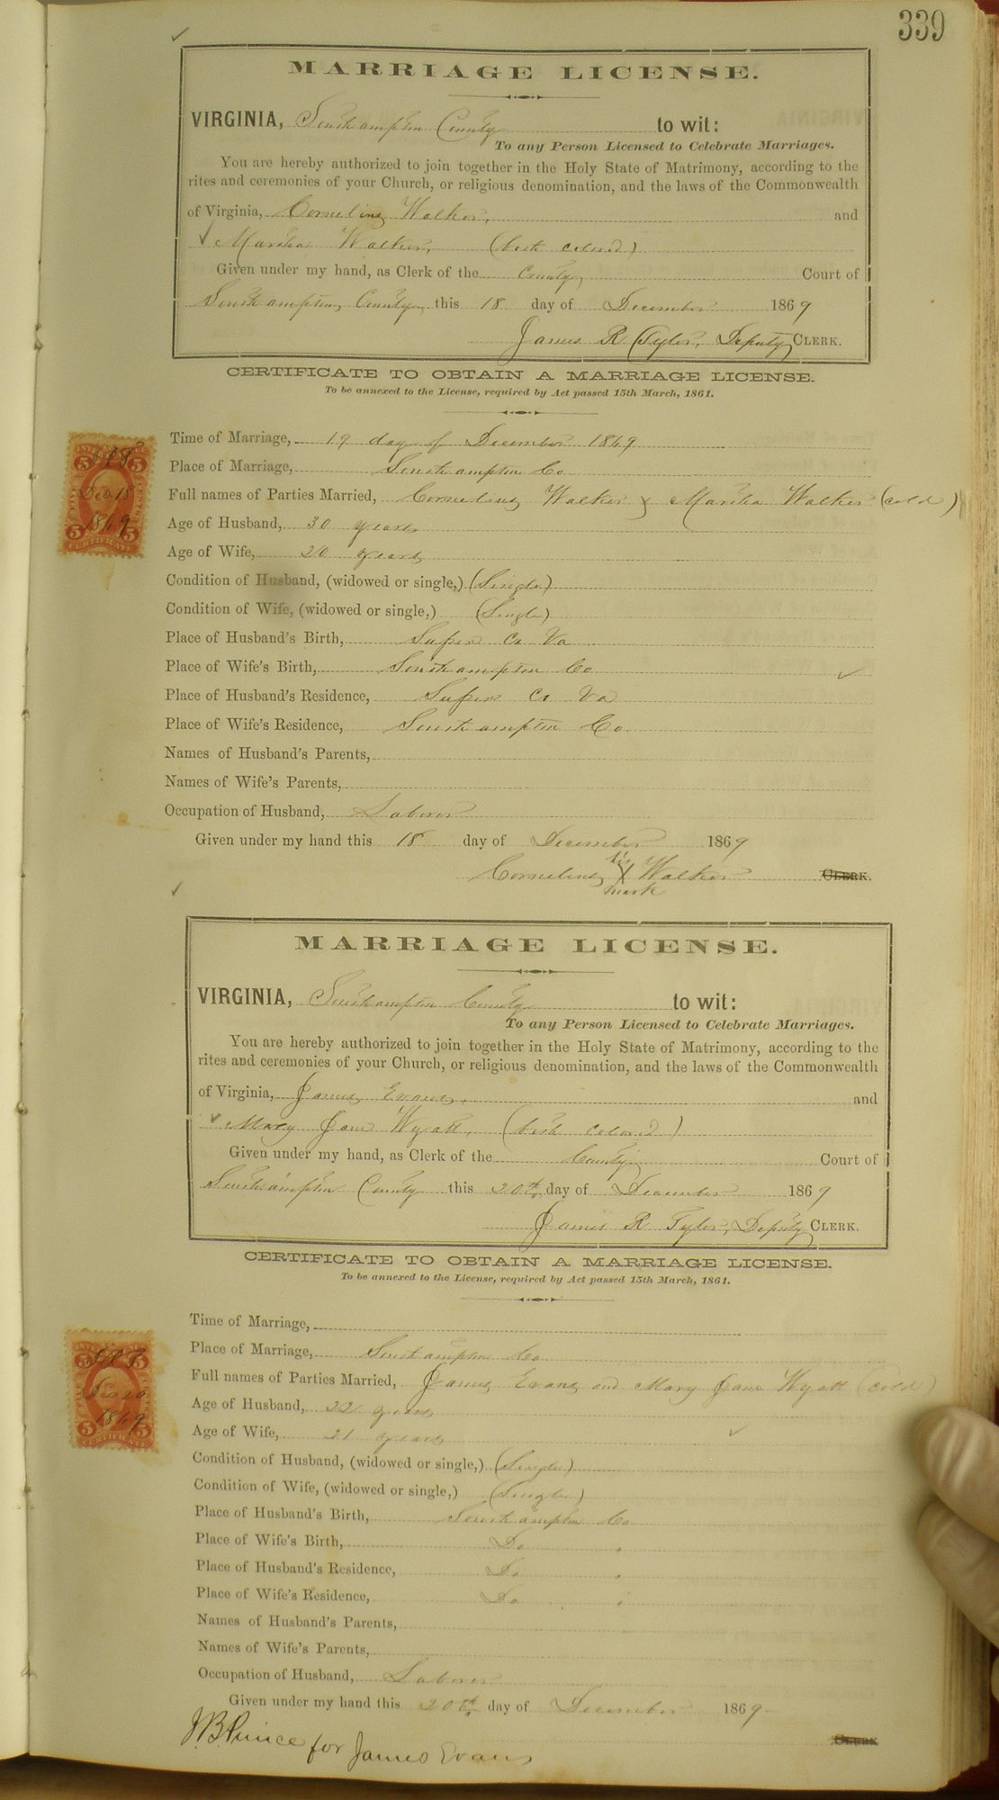 339
MARRIAGE LICENSE.
VIRGINIA, Southampton County to wit:
To any Person Licensed to Celebrate Marriages.
You are hereby authorized to join together in the Holy State of Matrimony, according to the
rites and ceremonies of your Church, or religious denomination, and the laws of the Commonwealth
of Virginia, Cornelius Walker, and
Martha Walker, (both colored)
Given under my hand, as Clerk of the County Court of
Southampton County this 18 day of December 1869
James R Tyler, Deputy CLERK.
CERTIFICATE TO OBTAIN A MARRIAGE LICENSE.
To be annexed to the License, required by Act passed 15th March, 1861.
Time of Marriage, 19 day of December 1869
Place of Marriage, Southampton Co
Full names of Parties Married, Cornelius Walker & Martha Walker (cold)
Age of Husband, 30 years
Age of Wife, 20 years
Condition of Husband, (widowed or single,) (Single)
Condition of Wife, (widowed or single,) (Single)
Place of Husband's Birth, Sussex Co Va
Place of Wife's Birth, Southampton Co
Place of Husband's Residence, Sussex Co Va
Place of Wife's Residence, Southampton Co
Names of Husband's Parents,
Names of Wife's Parents,
Occupation of Husband, Laborer
Given under my hand this 18 day of December 1869
Cornelius his X mark Walker CLERK.
5 5
Dec 18
1869
5 CERTIFICATE 5
MARRIAGE LICENSE.
VIRGINIA, Southampton County to wit:
To any Person Licensed to Celebrate Marriages.
You are hereby authorized to join together in the Holy State of Matrimony, according to the
rites and ceremonies of your Church, or religious denomination, and the laws of the Commonwealth
of Virginia, James Evans, and
Mary Jane Wyatt, (both colored)
Given under my hand, as Clerk of the County Court of
Southampton County this 20th day of December 1869
James R Tyler, Deputy CLERK.
CERTIFICATE TO OBTAIN A MARRIAGE LICENSE.
To be annexed to the License, required by Act passed 15th March, 1861.
Time of Marriage,
Place of Marriage, Southampton Co
Full names of Parties Married, James Evans and Mary Jane Wyatt (cold)
Age of Husband, 22 years
Age of Wife, 21 years
Condition of Husband, (widowed or single,) (Single)
Condition of Wife, (widowed or single,) (Single)
Place of Husband's Birth, Southampton Co
Place of Wife's Birth, Do
Place of Husband's Residence, Do
Place of Wife's Residence, Do
Names of Husband's Parents,
Names of Wife's Parents,
Occupation of Husband, Laborer
Given under my hand this 20th day of December 1869
J B Prince for James Evans CLERK
5 5
Dec 20
1869
5 CERTIFICATE 5